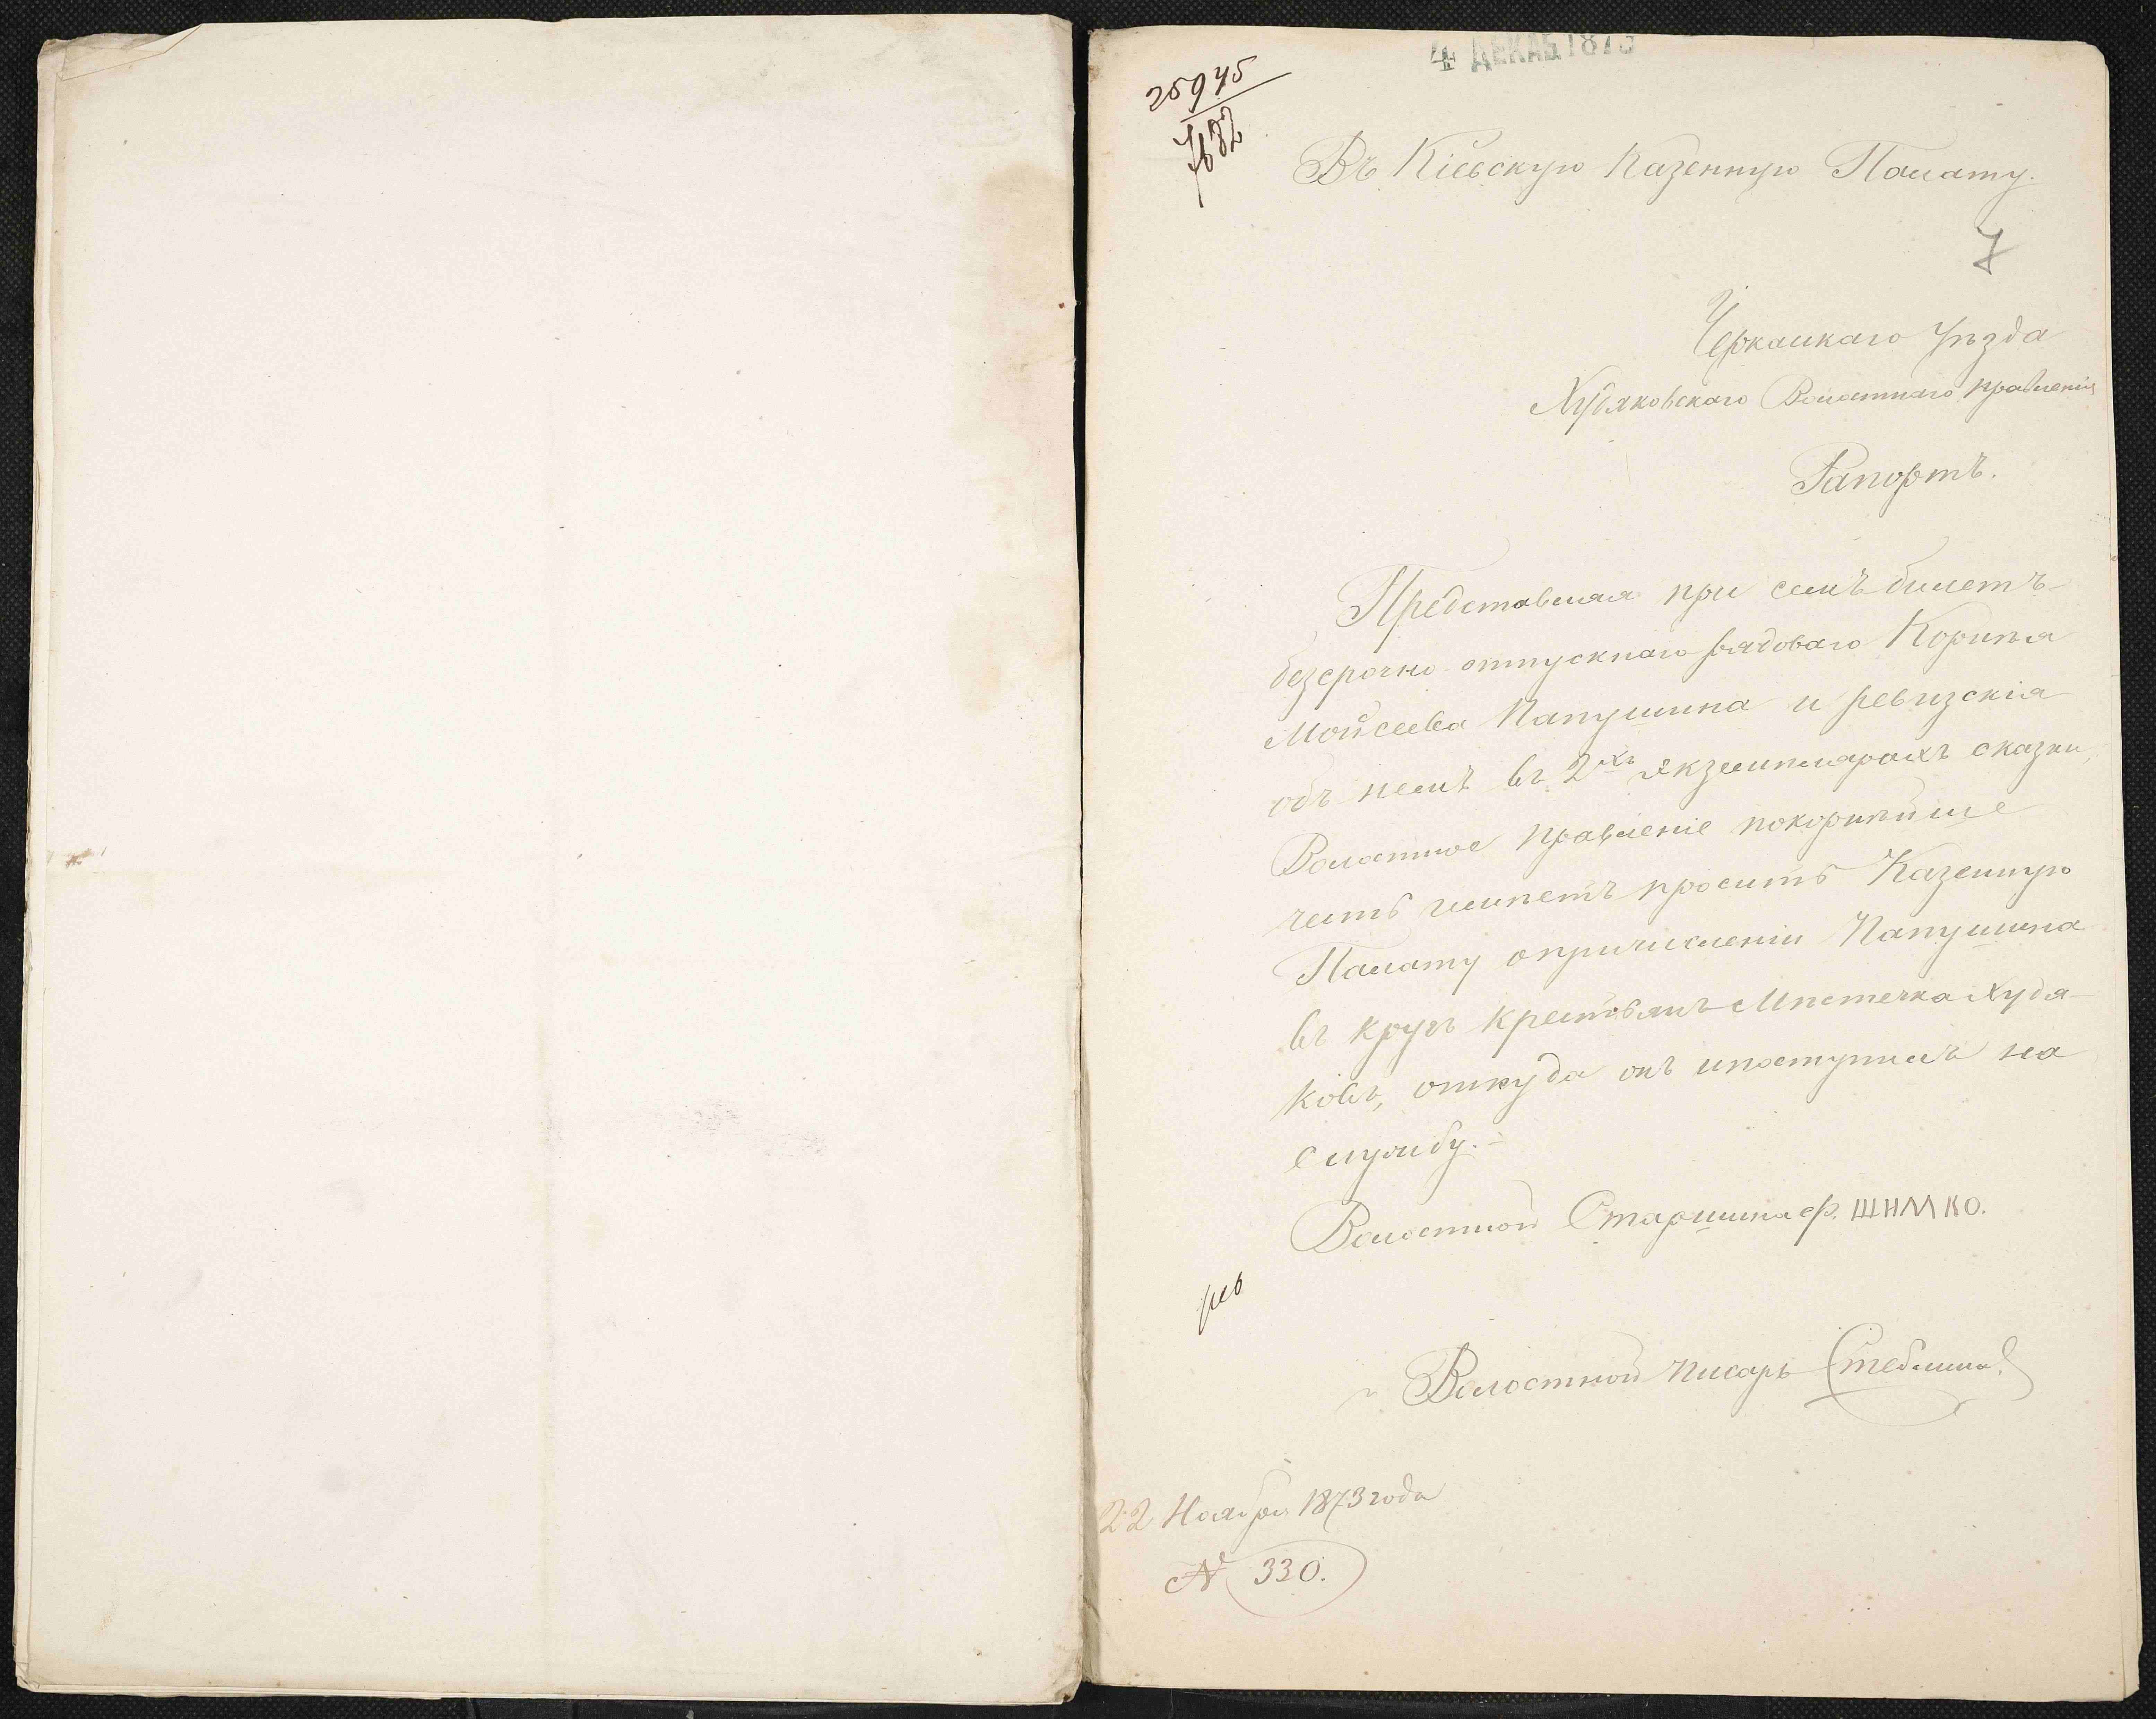 4 ДЕКАБ 1873
25945
7682
Въ Кіевскую Казенную Палату.
7
Черкаскаго Уѣзда
Худяковскаго Волостнаго правленія
Рапортъ.
Представляя при семъ билетъ
безсрочно-отпускнаго рядоваго Корнѣя
Мойсеева Папушина и ревизскія
объ немъ въ 2хъ экземплярахъ сказки,
Волостное правленіе покорнѣйше
честь имѣетъ просить Казенную
Палату опричисленіи Папушина
въ кругъ крестьянъ Мѣстечка Худя-
ковъ, откуда онъ ипоступилъ на
службу.
Волостной Старшина Ф. ШИМКО.
Волостной писарь
22 Ноября 1873 года
N 330.